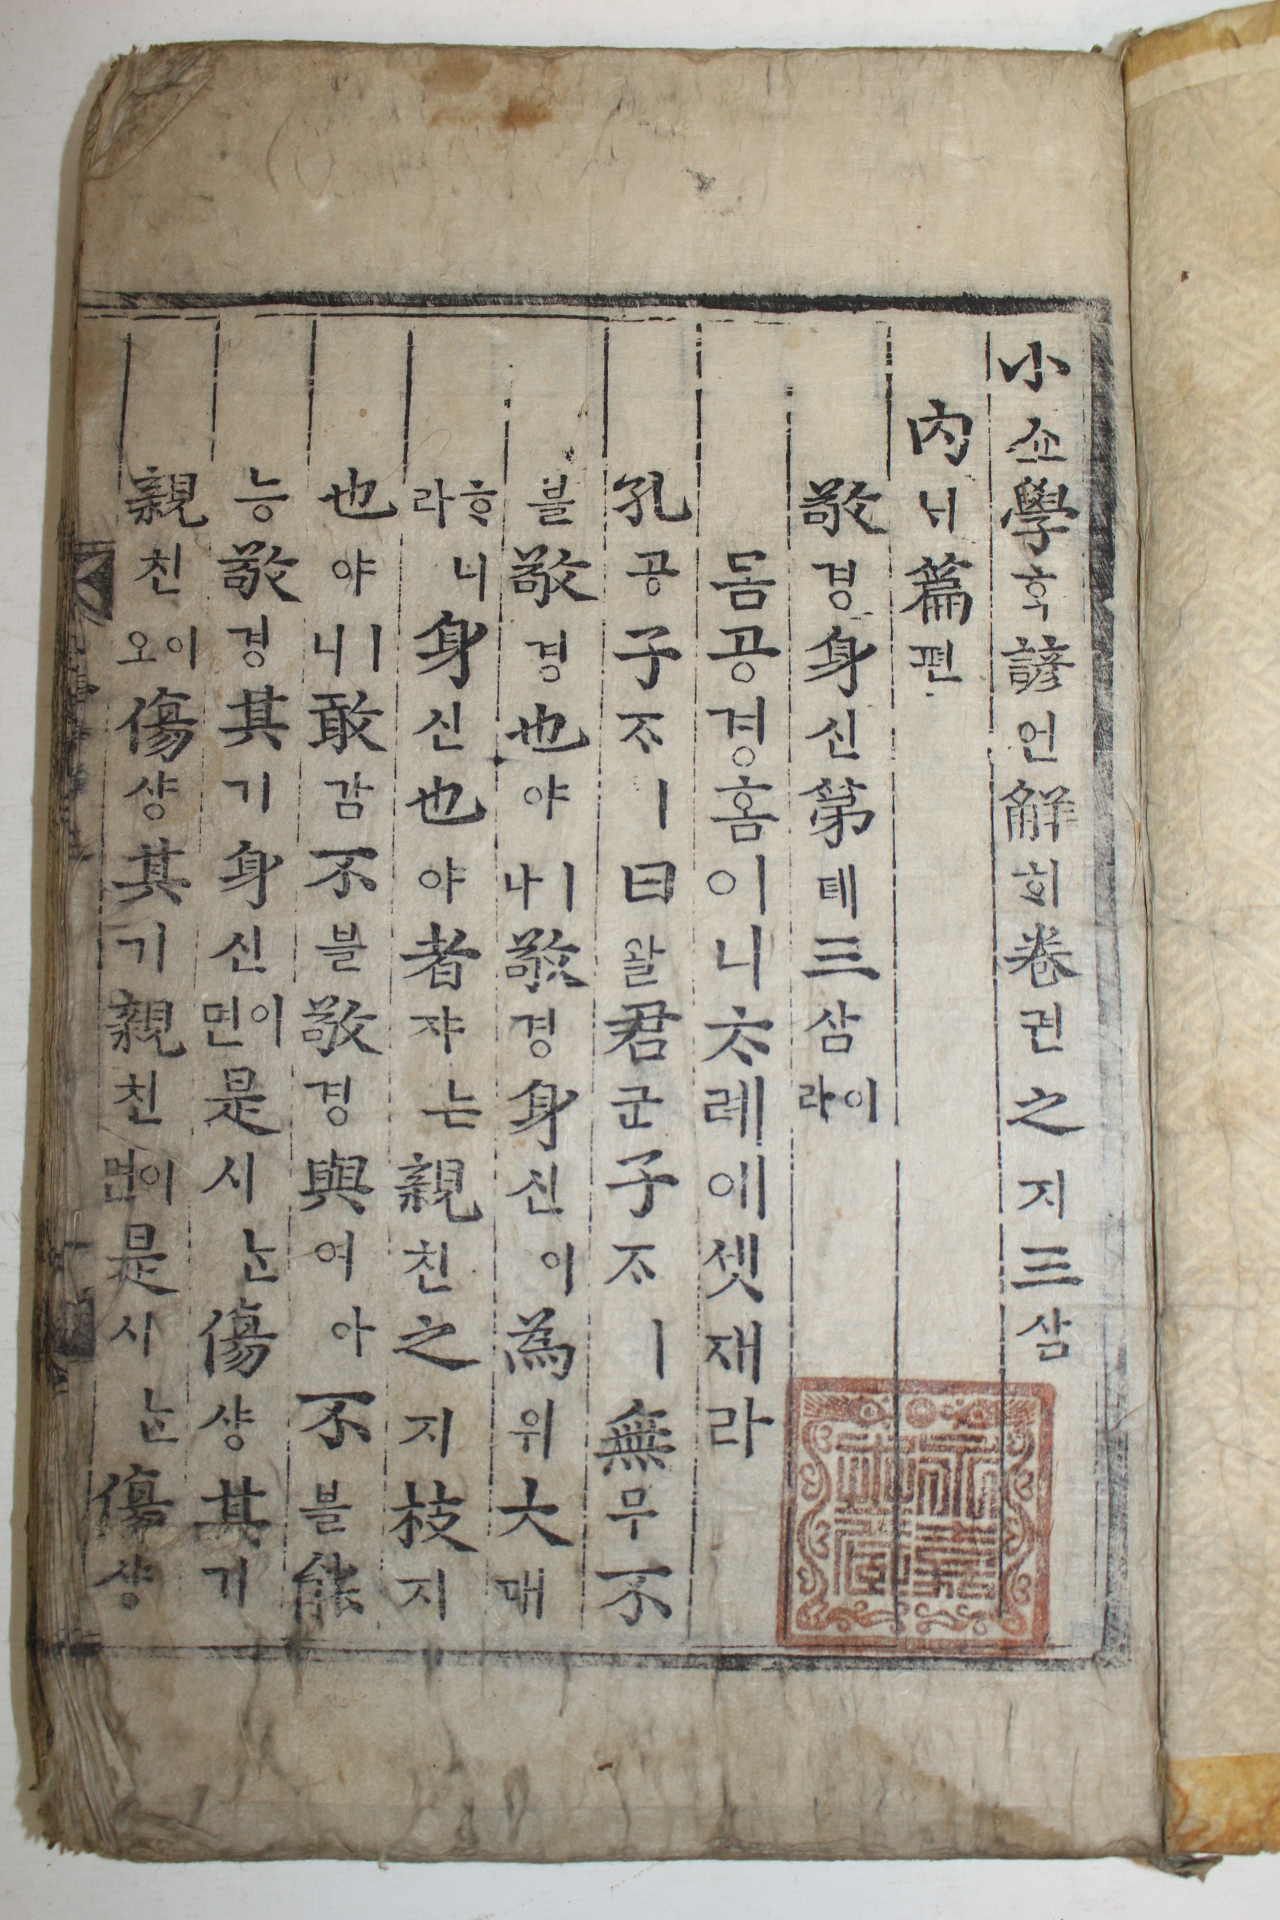 小쇼學ᄒᆞᆨ諺언解ᄒᆡ卷권之지三삼
內ᄂᆡ篇편
敬경身신第뎨三삼이라
몸공경홈이니ᄎᆞ례예셋재라
孔공子ᄌᆞㅣ曰왈君군子ᄌᆞㅣ無무不
블敬경也야ㅣ나敬경身신이為위大대
ᄒᆞ니라身신也야者쟈는親친之지枝지
也야ㅣ니敢감不블敬경與여아不블能
능敬경其기身신이면是시ᄂᆞᆫ傷샹其기
親친이오傷샹其기親친이면是시ᄂᆞᆫ傷샹